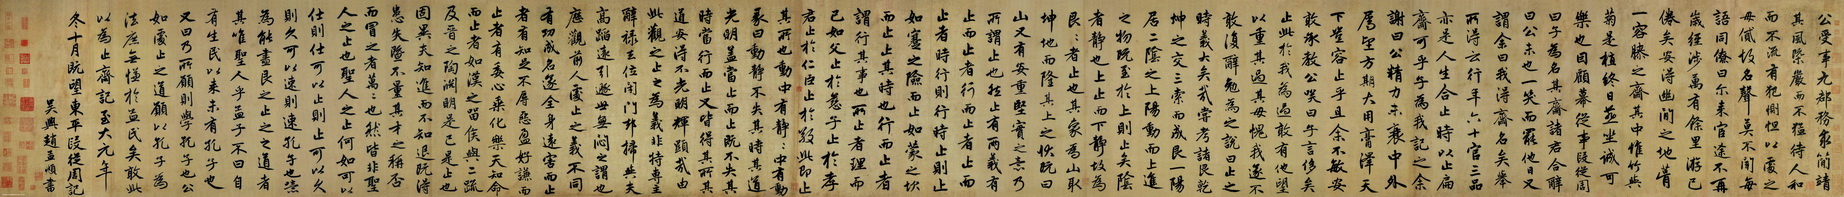 公受事尤郡務最簡靖
其風槩嚴而不猛待人和
而不流有犯惻怛以處之
毋俾圾名聲莫不聞每
語同僚曰尓來官途不再
歲經涉萬有餘里游已
倦矣安得幽閒之地葺
一容膝之齋其中惟竹與
菊是植終日並坐誠可
樂也因顧幕從事段從周
曰子為名其齋諸君合辭
曰公未也一笑而罷他日又
謂余曰我得齋名矣舉
所得云行年六十官三品
亦是人生合止時以止扁
齋可乎子為我記之余
謝曰公精力未衰中外
屬望方期大用膏澤天
下詎容止乎且余不敏安
敢承教公哂曰子言侈矣
止此於我為過敢有他望
以重其過其毋愧我遂不
敢復辭勉為之說曰止之
時義大矣哉嘗考諸艮乾
坤之交三索而成艮一陽
居二陰之上陽動而上進
之物既至於上則止矣陰
者靜也上止而下靜故為
艮々者止也其象為山取
坤地而隆其上之狀既曰
山又有安重堅實之意乃
所謂止也然止有兩義有
止而止者行而止者止而
止者時行則行時止則止
如蹇之險而止如蒙之坎
而止止其時也行而止者
謂行其事也所止者理而
已如父止於慈子止於孝
君止於仁臣止於敬此即止
其所也動中有靜々中有動
彖曰動靜不失其時其道
光明盖當止而止既不失其
時當行而止又皆得其所其
道安得不光明輝顯哉由
此觀之止之為義非特專主
辭祿去位閉門却掃與夫
高蹈遠引遯世無悶之謂也
應觀前人處止之義不同
有功成名遂全身遠害而止
者有知足不辱惡盈好謙而
止者有委心乘化樂天知命
而止者如漢之留侯與二疏
及晉之陶淵明是已是止也
固異夫知進而不知退既得
患失隳不量其才之稱否
而冒之者萬々也然皆非聖
人之止也聖人之止何如可以
仕則仕可以止則止可以久
則久可以速則速孔子也
為能盡艮之止之之道者
其唯聖人乎孟子不曰自
有生民以來未有孔子也
又曰乃所願則學孔子也公
如處止之道願以孔子為
法庶無慊於孟氏矣敢此
以為止齋記至大元年
冬十月既望東平段從周記
吳興趙孟頫書